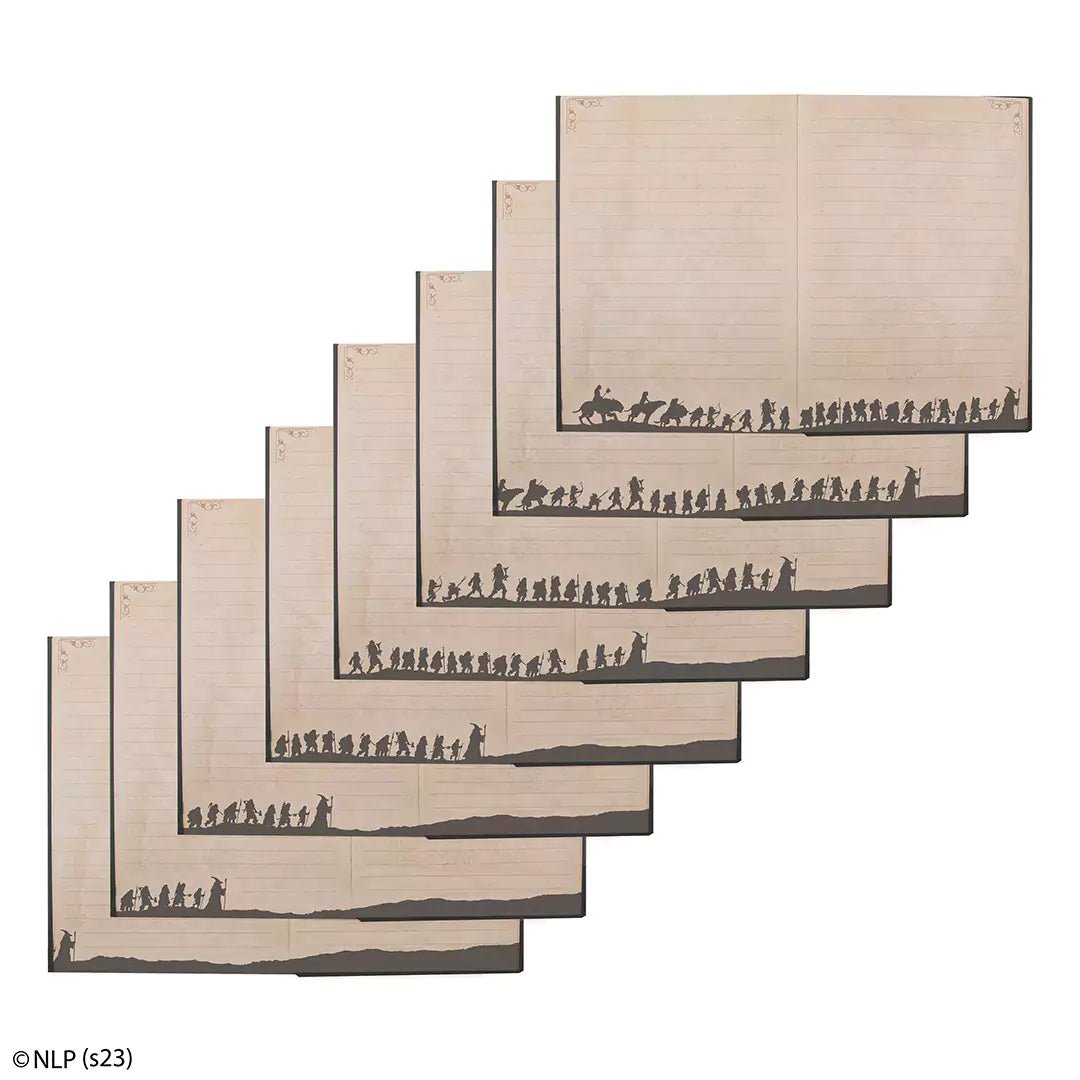 ©NLP (s23)